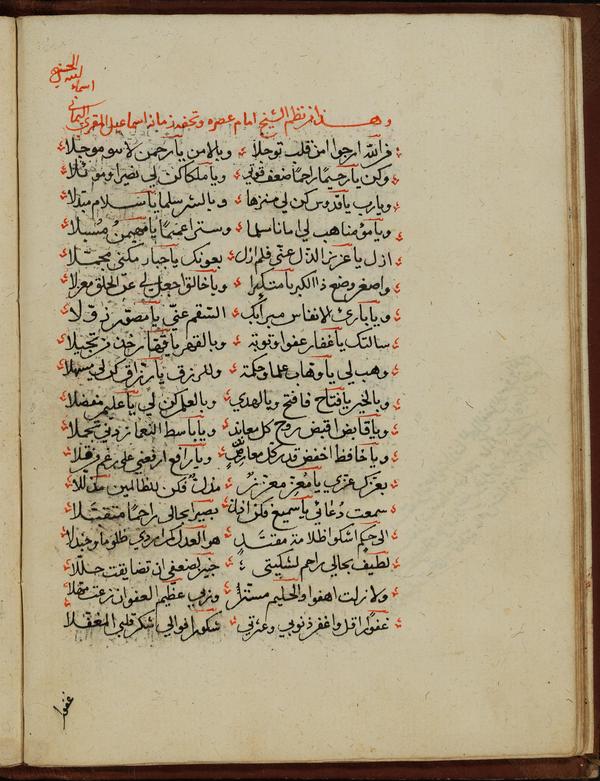 الحسنى
لنظم
اسماء
وهذا من نظم الشيخ امام عصره وتحفة زمانه اسماعيل المقرئ اليماني
فبالله ارجوا امن قلب توجلا وبالامن يا رحمن لا يبق موجلا
وكن يا رحيما راحما ضعف قوتي ويا ملكا كن لي نصيرا وموئلا
ويا رب يا قدوس كن لي منزها وبالستر سلما يا سلام
ويا مؤمنا هب لي امانا مسلما وسترا عميما يا مهيمن مسبلا
ازل يا عزيز الذل عني فلم ازل بعونك يا جبار مكفي مجملا
واصغر وضع ذا الكبر يا متكبرا ويا خالق اجعل لي عن الخلق معزلا
ويا بارئ الانفاس السقم عني يا مصور زولا
سالتك يا غفار عفوا وتوبة وبالقهر يا قهار خذ من تحيلا
وهب لي يا وهاب علما وحكمة وللرزق يا رزاق كن لي مسهلا
وبالخير يا فتاح فافتح وبالهدي وبالعلم كن لي يا عليم مفضلا
ويا قابض اقبض روح كل معاند ويا باسط النعما زدني تجملا
ويا خافظ اخفض قدر كل معارض ويا رافع ارفعني على رغم من قلا
بعزك عزي يا معز معزز مذل فكن للظالمين مذللا
سمعت دعائي يا سميع فكن اذا بصير بحالي راحما متقبلا
الى حكم اشكوا ظلامة مفتد هو العدل
لطيف بحالي راحم لشكيتي خبير لضعفي ان تضايقت حللا
ولا زلت اهفوا والحليم مستر وربي عظيم العفو ان زغت مهلا
غفور اقل واغفر ذنوبي وعثرتي شكور افوالي شكر قلبي المغفلا